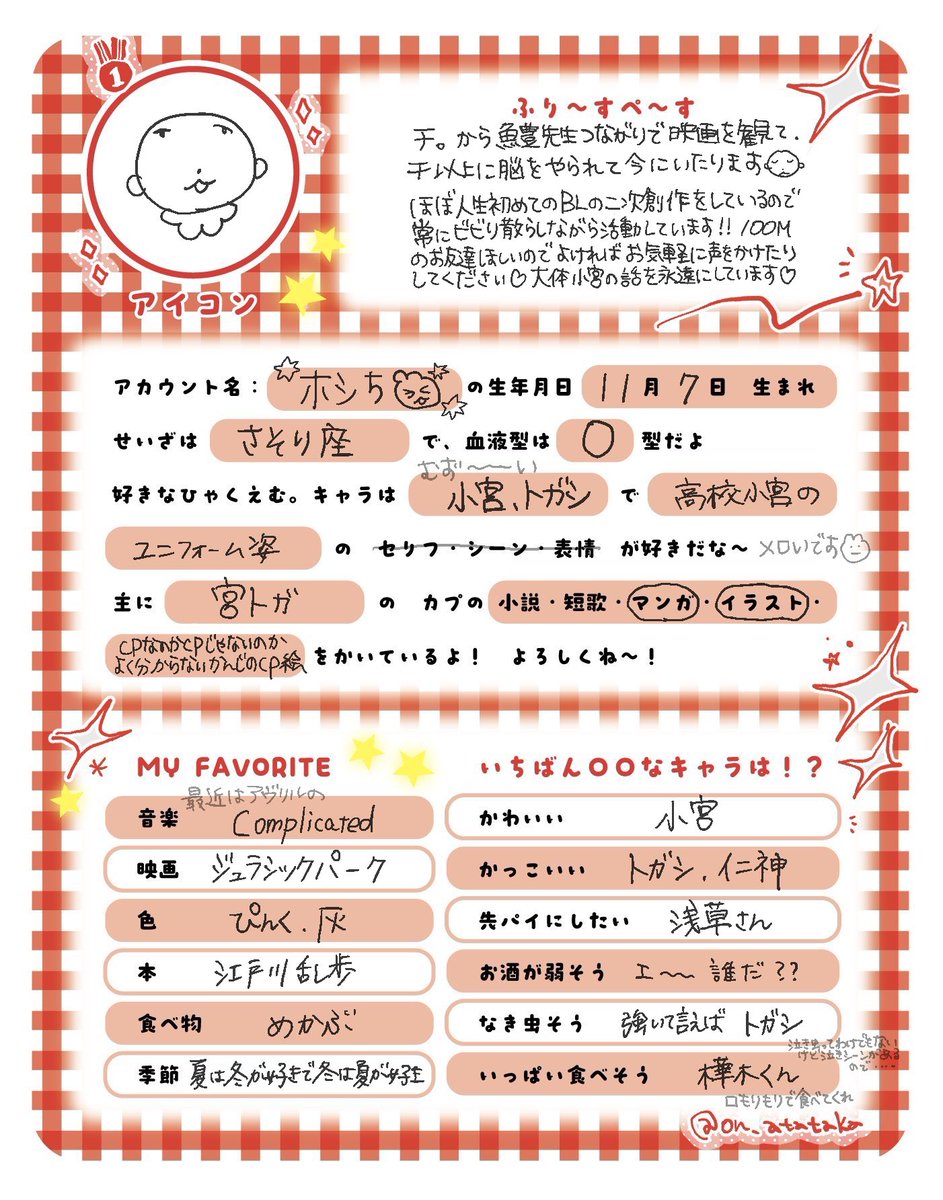 1
アイコン
ふり〜すぺ〜す
チ。から魚豊先生つながりで映画を観て、
チ以上に脳をやられて今にいたります
ほぼ人生初めてのBLの二次創作をしているので
常にビビり散らしながら活動しています!! 100M
のお友達ほしいのでよければお気軽に声をかけたり
してください♡大体小宮の話を永遠にしています♡
アカウント名: ホシち の生年月日 11月7日 生まれ
せいざは さそり座 で、血液型は O 型だよ
むず〜〜い
好きなひゃくえむ。キャラは 小宮、トガシ で 高校小宮の
ユニフォーム姿 の セリフ・シーン・表情 が好きだな〜 メロいです
主に 宮トガ の カプの 小説・短歌・マンガ・イラスト・
CPなのかCPじゃないのか
よく分からないかんじのCP絵 をかいているよ! よろしくね〜!
MY FAVORITE
最近はアヴリルの
音楽 Complicated
映画 ジュラシックパーク
色 ぴんく、灰
本 江戸川乱歩
食べ物 めかぶ
季節 夏は冬が好きで冬は夏が好き
いちばん〇〇なキャラは!?
かわいい 小宮
かっこいい トガシ、仁神
先パイにしたい 浅草さん
お酒が弱そう エ〜〜 誰だ??
なき虫そう 強いて言えば トガシ
泣き虫ってわけでもない
けどう泣きシーンがある
ので……
いっぱい食べそう 樺木くん
口もりもりで食べてくれ
@on_atataka